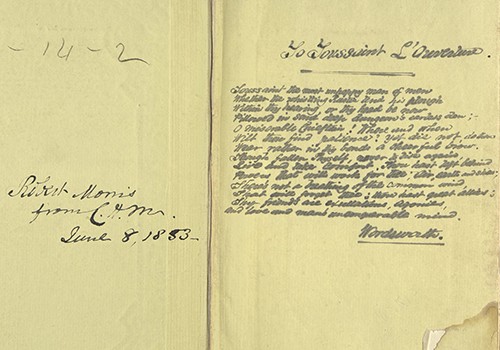 -14-2
Robert Morris
from C.H.M.
June 8,
To Toussaint L'Ouverture.
Toussaint the most unhappy man of men
Whether the whistling Rustic tend his plough
Within thy hearing or thy head be now
Pillowed in some deep dungeon's earless den;-
O miserable Chieftain! Where and when
Wilt thou find patience? Yet die not do thou
Wear rather in thy bonds a cheerful brow.
Though fallen thyself, never to rise again
Live and take comfort. Thou hast left behind
Powers that will work for thee: air, earth and skies;
There's not a breathing of the common wind
That will forget thee: thou hast great allies:
Thy friends are exultations, agonies,
And love and man's unconquerable mind.
Wordsworth.